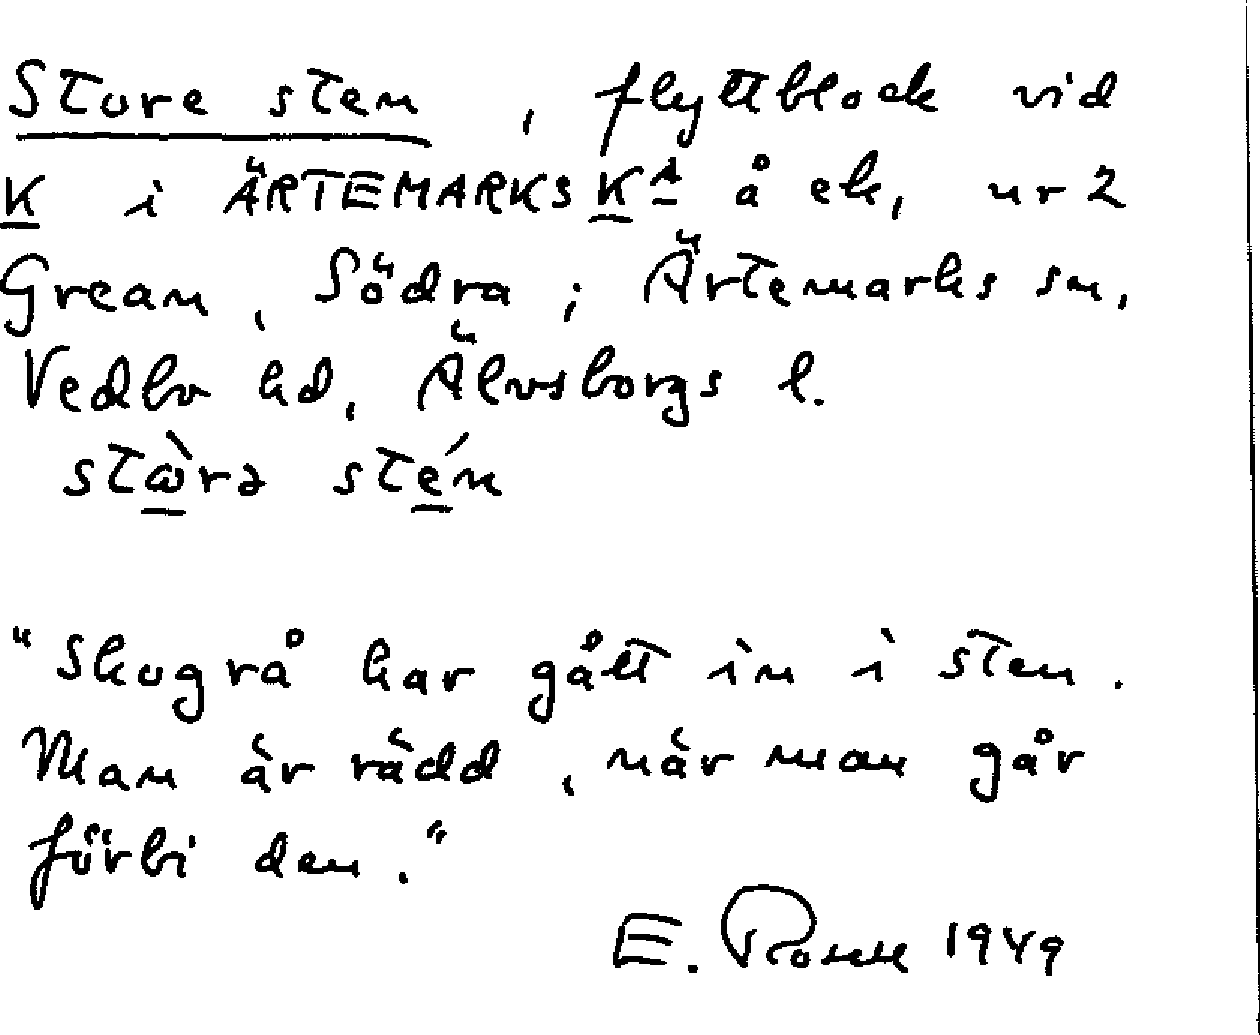 Store sten, flyttblock vid
K i ÄRTEMARKS K:A å ek, nr 2
Grean, Södra; Ärtemarks sn,
Vedbo hd, Älvsborgs l.
stɷ̀rə stén
"Skogrå har gått in i sten.
Man är rädd, när man går
förbi den."
E. Rosell 1949